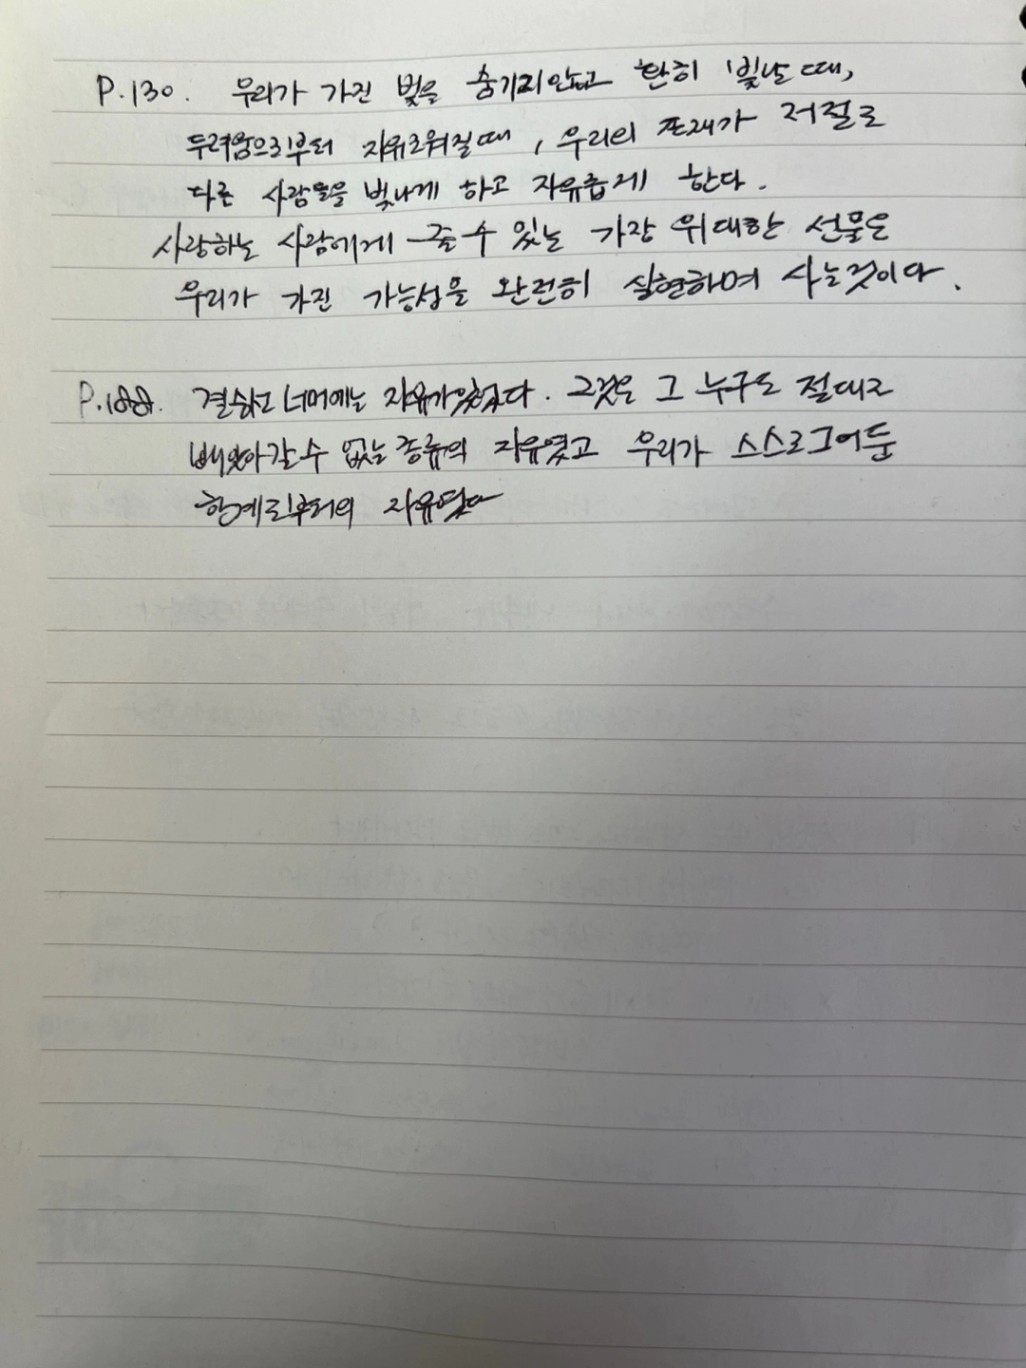 P.130. 우리가 가진 빛을 숨기지않고 환히 빛날 때,
두려움으로부터 자유로워질때, 우리의 존재가 저절로
다른 사람들을 빛나게 하고 자유롭게 한다.
사랑하는 사람에게 줄 수 있는 가장 위대한 선물은
우리가 가진 가능성을 완전히 실현하며 사는것이다.
P.188. 결심 너머에는 자유가있었다. 그것은 그 누구도 절대로
빼앗아갈 수 없는 종류의 자유였고 우리가 스스로그어둔
한계로부터의 자유였다